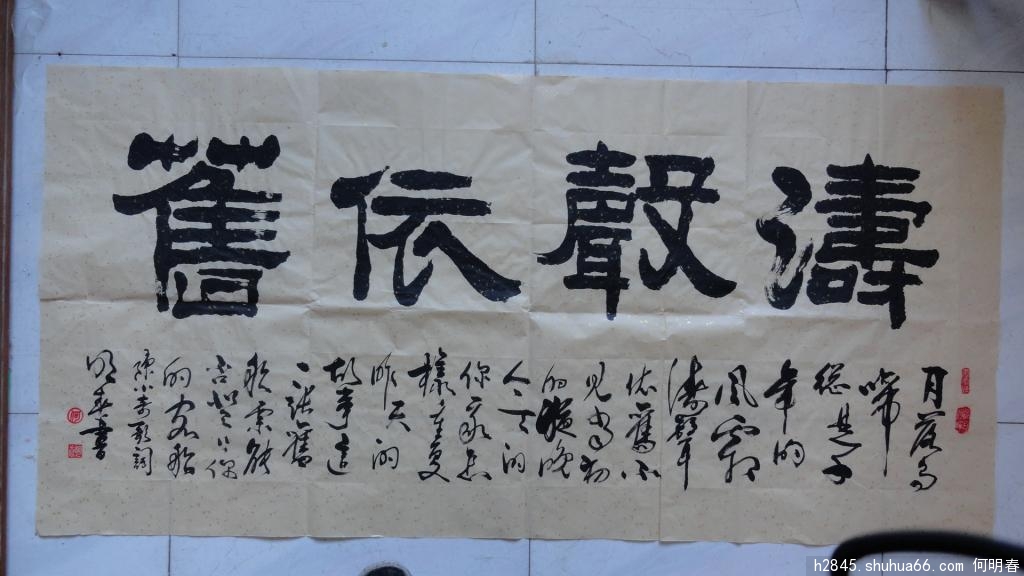 濤聲依舊
月落烏
啼
總是千
年的
風霜
濤聲
依舊不
見當初
的夜晚
今天的
你我怎
樣重复
昨天的
故事這
一張舊
船票能
否登上你
的客船
陳小奇歌詞
明春書
h2845.shuhua66.com 何明春